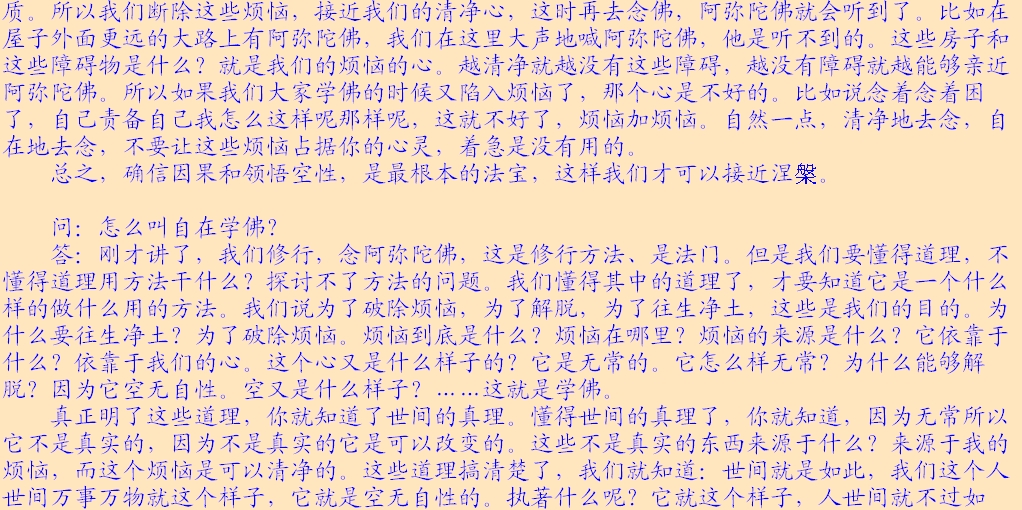 质。所以我们断除这些烦恼，接近我们的清净心，这时再去念佛，阿弥陀佛就会听到了。比如在
屋子外面更远的大路上有阿弥陀佛，我们在这里大声地喊阿弥陀佛，他是听不到的。这些房子和
这些障碍物是什么？就是我们的烦恼的心。越清净就越没有这些障碍，越没有障碍就越能够亲近
阿弥陀佛。所以如果我们大家学佛的时候又陷入烦恼了，那个心是不好的。比如说念着念着困
了，自己责备自己我怎么这样呢那样呢，这就不好了，烦恼加烦恼。自然一点，清净地去念，自
在地去念，不要让这些烦恼占据你的心灵，着急是没有用的。
总之，确信因果和领悟空性，是最根本的法宝，这样我们才可以接近涅槃。
问：怎么叫自在学佛？
答：刚才讲了，我们修行，念阿弥陀佛，这是修行方法、是法门。但是我们要懂得道理，不
懂得道理用方法干什么？探讨不了方法的问题。我们懂得其中的道理了，才要知道它是一个什么
样的做什么用的方法。我们说为了破除烦恼，为了解脱，为了往生净土，这些是我们的目的。为
什么要往生净土？为了破除烦恼。烦恼到底是什么？烦恼在哪里？烦恼的来源是什么？它依靠于
什么？依靠于我们的心。这个心又是什么样子的？它是无常的。它怎么样无常？为什么能够解
脱？因为它空无自性。空又是什么样子？……这就是学佛。
真正明了这些道理，你就知道了世间的真理。懂得世间的真理了，你就知道，因为无常所以
它不是真实的，因为不是真实的它是可以改变的。这些不是真实的东西来源于什么？来源于我的
烦恼，而这个烦恼是可以清净的。这些道理搞清楚了，我们就知道：世间就是如此，我们这个人
世间万事万物就这个样子，它就是空无自性的。执著什么呢？它就这个样子，人世间就不过如